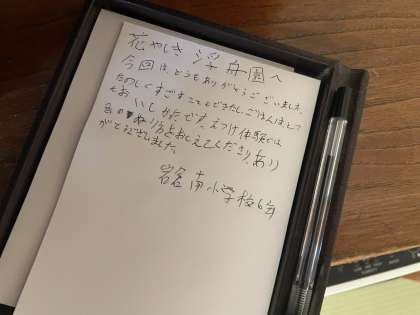 花やしき 浮舟園へ
今回は、どうもありがとうございました。
たのしくすごすことができたし、ごはんはとて
もおいしかったです。えつけ体験では
色のぬり方をおしえてくださり、あり
がとうございました。
岩倉南小学校6年